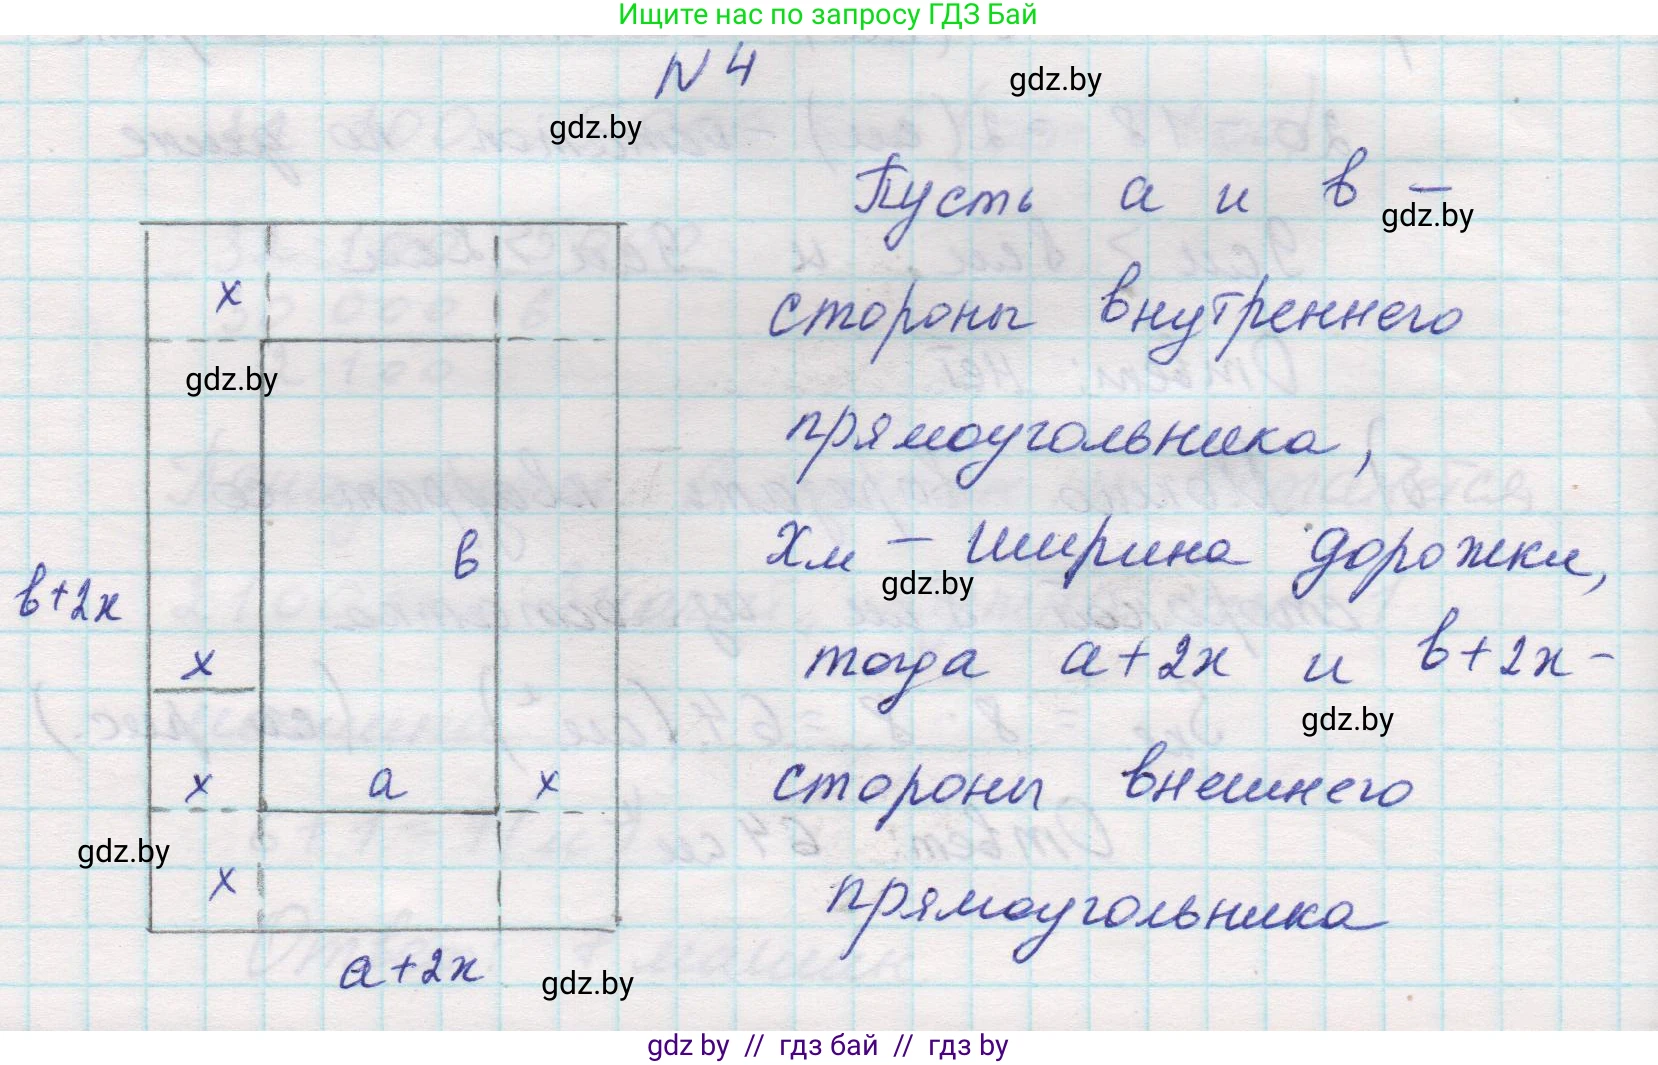 Ищите нас по запросу ГДЗ Бай
N 4
gdz.by
gdz.by
Пусть а и в –
gdz.by
стороны внутреннего
прямоугольника,
хм – ширина дорожки,
gdz.by
тогда а+2х и в+2х –
gdz.by
стороны внешнего
прямоугольника
х
gdz.by
в
в+2х
х
х
а
х
gdz.by
х
а+2х
gdz.by
gdz by // гдз бай // гдз by